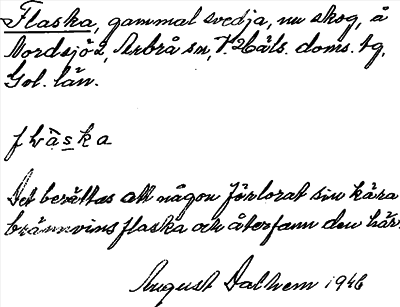 Flaska, gammal svedja, nu skog, å
Nordsjö 2, Arbrå sn, V. Häls. doms. tg,
Gvl. län.
flàska
Det berättas att någon förlorat sin kära
brännvinsflaska och återfann den här.
August Dalhem 1946